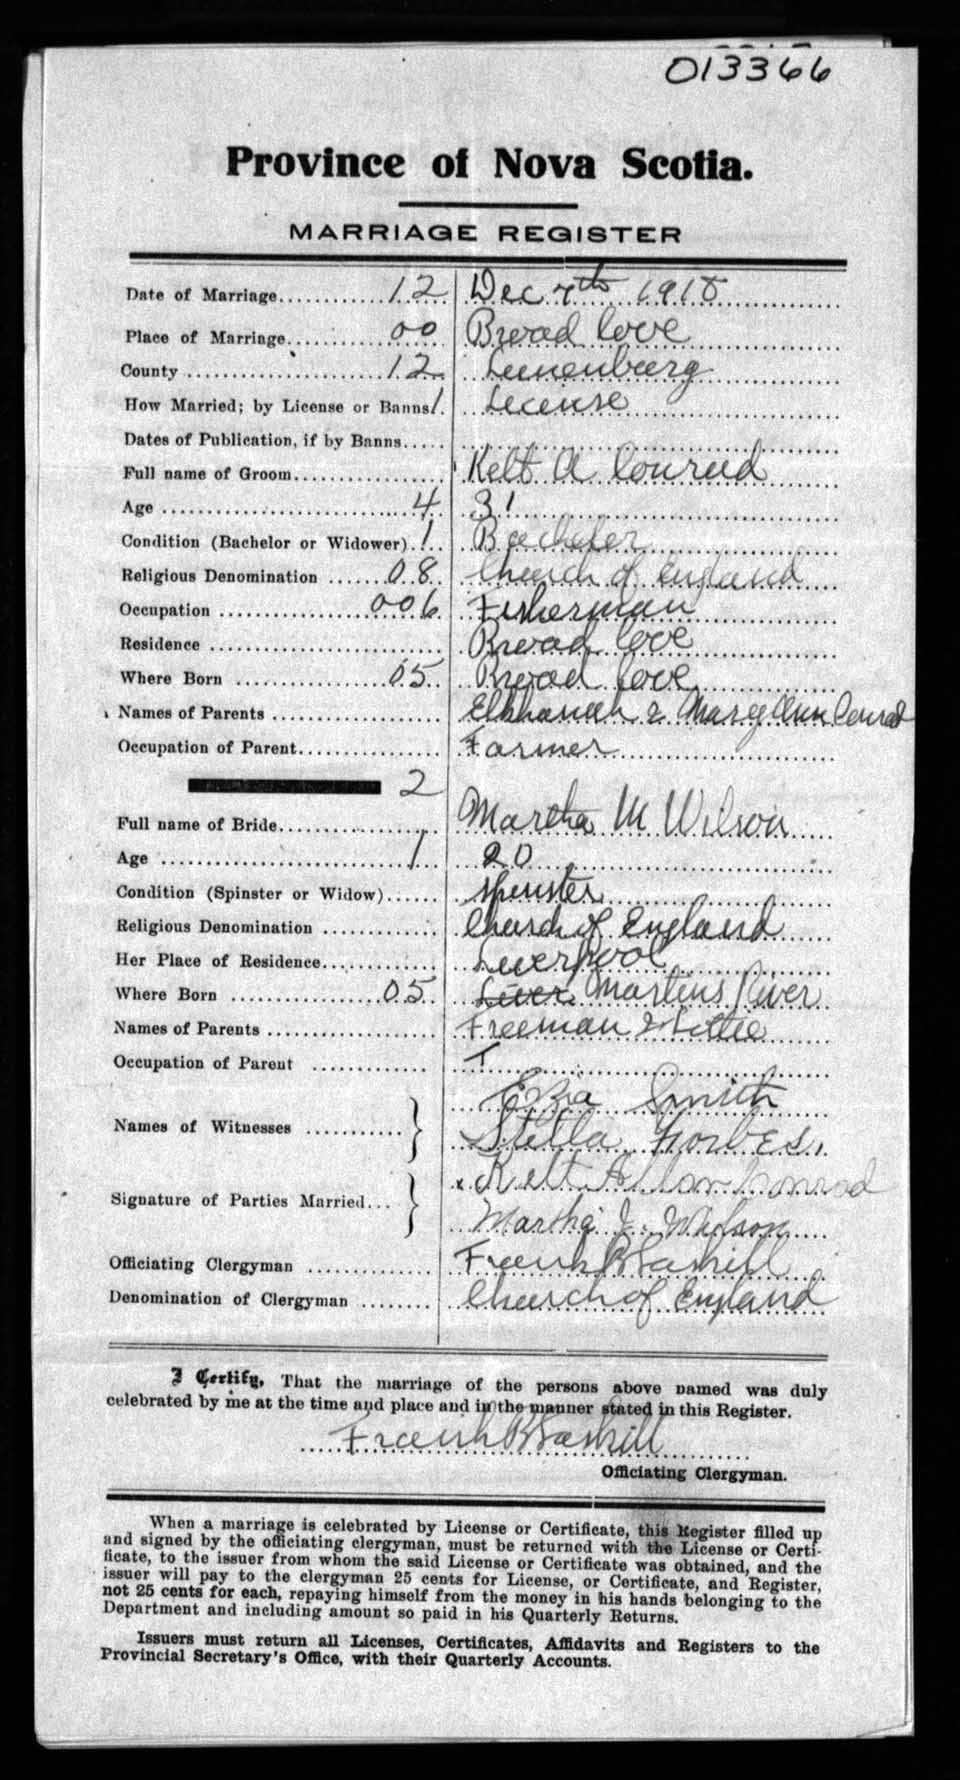 013366
Province of Nova Scotia.
MARRIAGE REGISTER
Date of Marriage............ 12 Dec 7th 1918
Place of Marriage............ 00 Broad Cove
County ............ 12 Lunenburg
How Married; by License or Banns 1. License
Dates of Publication, if by Banns.....
Full name of Groom............ Kelt A Conrad
Age ............ 4 31
Condition (Bachelor or Widower). 1. Bachelor
Religious Denomination ...... 08. Church of England
Occupation ............ 006 Fisherman
Residence ............ Broad Cove
Where Born ............ 05. Broad Cove
Names of Parents ............ Elkhanah & Mary Ann Conrad
Occupation of Parent............ Farmer
2
Full name of Bride............ Martha M Wilson
Age ............ 1 20
Condition (Spinster or Widow)...... Spinster
Religious Denomination ............ Church of England
Her Place of Residence............ Liverpool
Where Born ............ 05. Liver Martins River
Names of Parents ............ Freeman & Lottie
Occupation of Parent ............
Names of Witnesses ............ } Ezra Smith
Stella Forbes.
Signature of Parties Married... } x Kelt Allan Conrad
Martha J. Wilson
Officiating Clergyman ............ Frank B Gaskill
Denomination of Clergyman ........ Church of England
I Certify, That the marriage of the persons above named was duly
celebrated by me at the time and place and in the manner stated in this Register.
Frank B Gaskill
Officiating Clergyman.
When a marriage is celebrated by License or Certificate, this Register filled up
and signed by the officiating clergyman, must be returned with the License or Certi-
ficate, to the issuer from whom the said License or Certificate was obtained, and the
issuer will pay to the clergyman 25 cents for License, or Certificate, and Register,
not 25 cents for each, repaying himself from the money in his hands belonging to the
Department and including amount so paid in his Quarterly Returns.
Issuers must return all Licenses, Certificates, Affidavits and Registers to the
Provincial Secretary's Office, with their Quarterly Accounts.